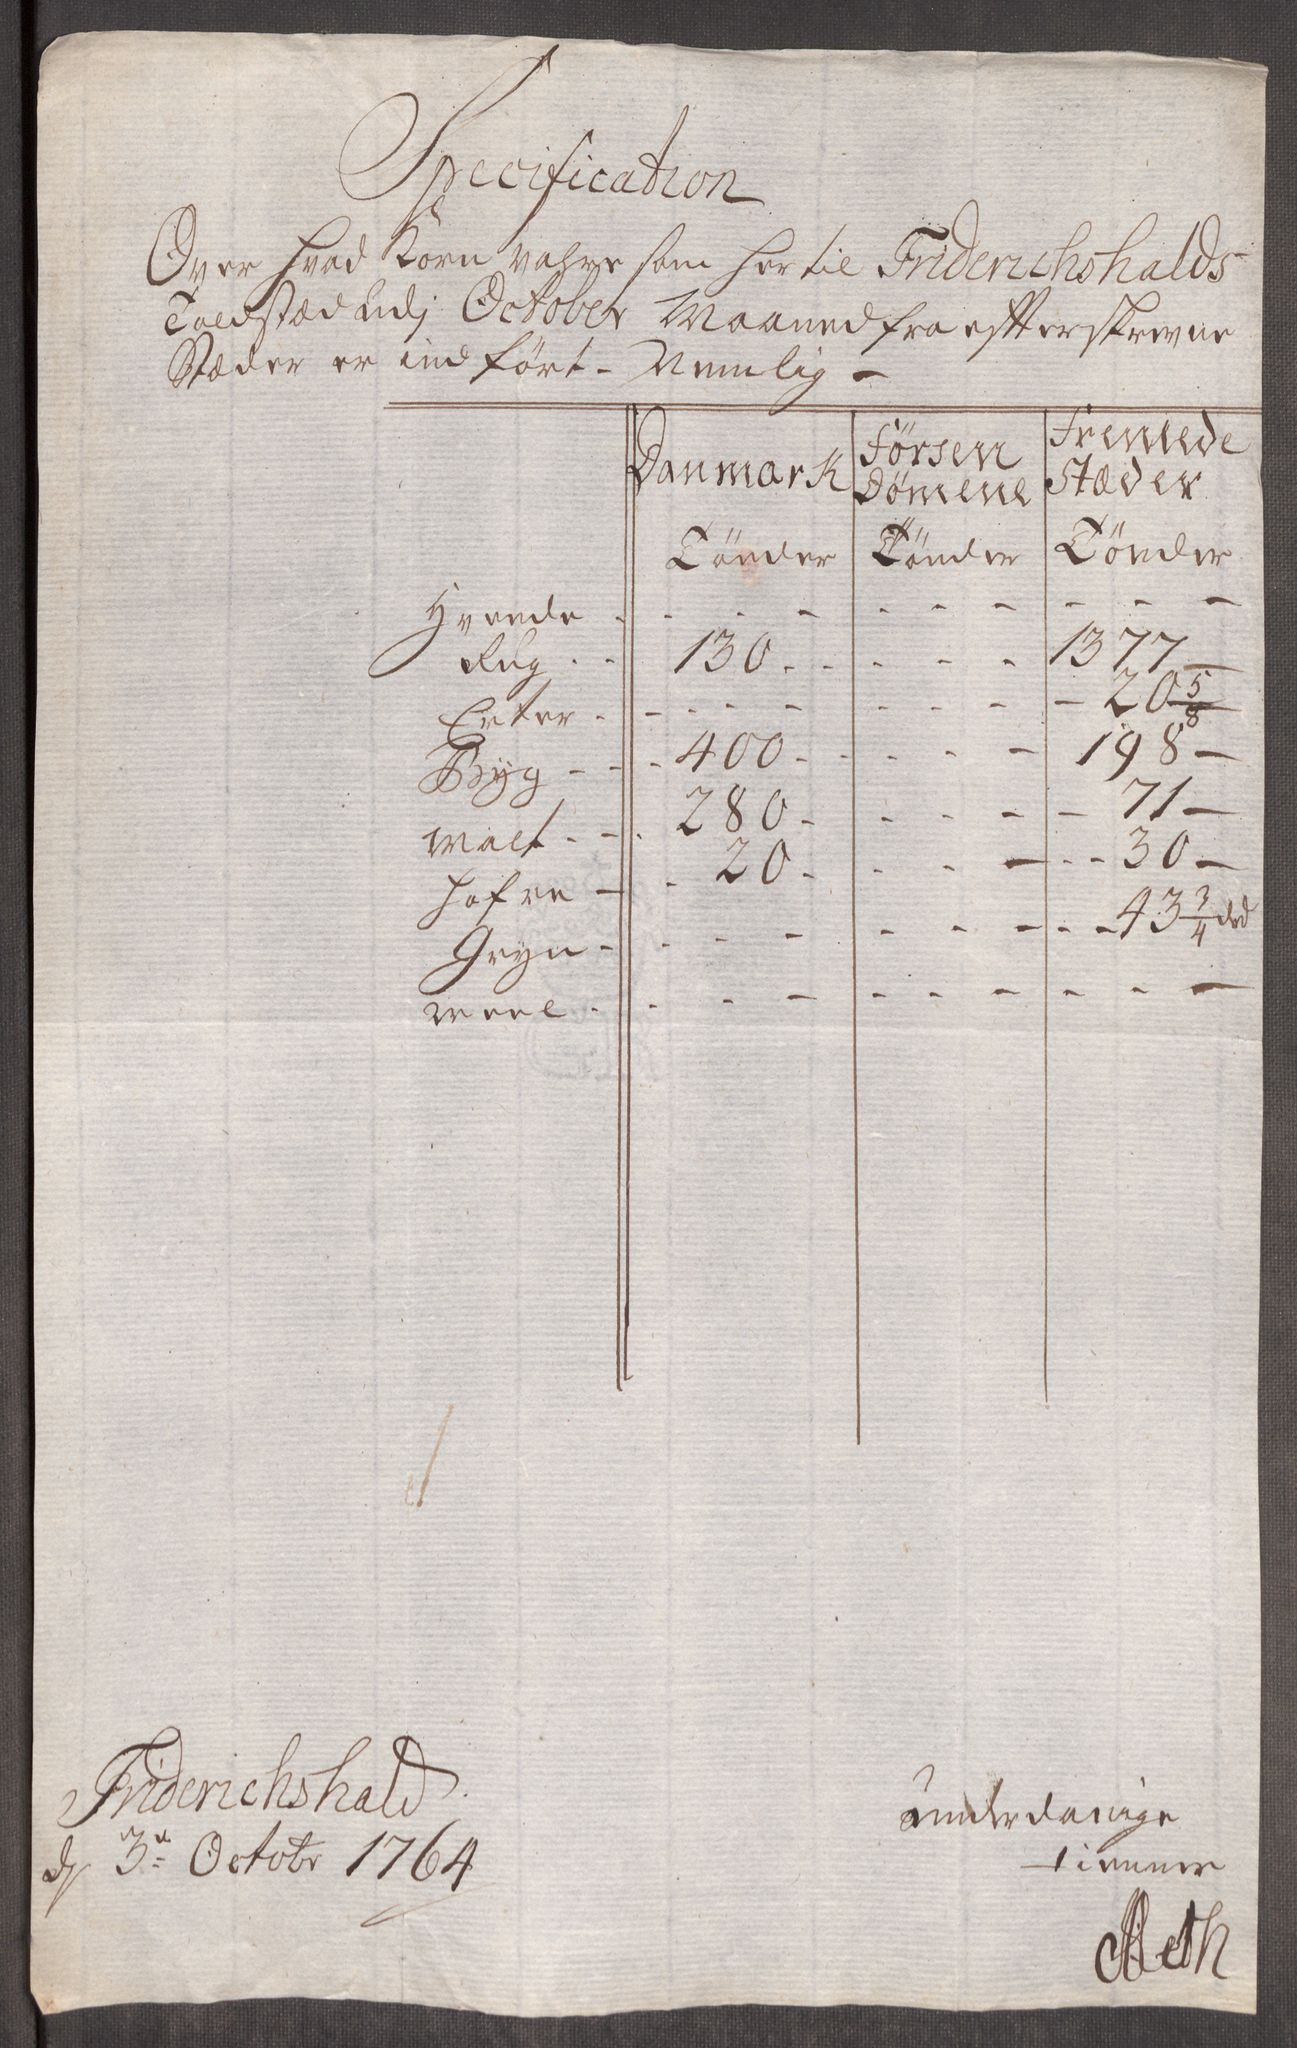 Specification
Over hvad Korn vahre som her til Friderichshalds
Toldstæd udj October Maaned fra effterskrevne
Stæder er indført - Nemlig -
Danmark Førsten Dømene Fremede Stæder
Tönder Tönder Tönder
Hvede - - - - - - - - -
Rug - - 130 - - - - - 1377 -
Erter - - - - - - - - 20 5/8
Byg - - 400 - - - - - 198 -
Malt - - 280 - - - - - 71 -
Hafre - 20 - - - - - 30 -
Gryn - - - - - - - - 43 3/4
Meel - - - - - - - - -
Friderichshald
d 3e October 1764
underdanige
tienner